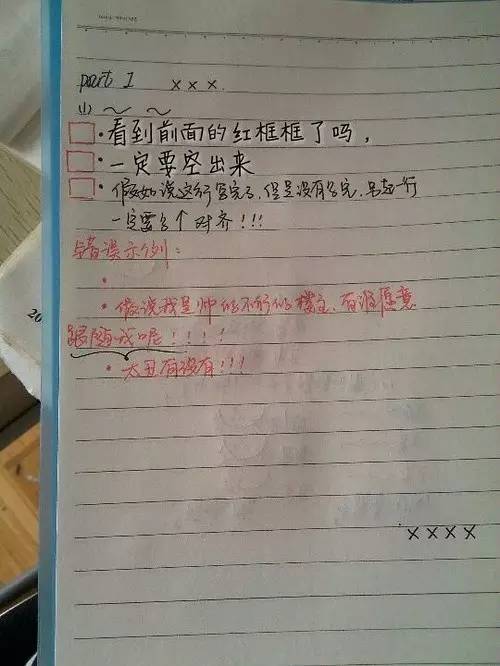 part 1 xxx.
(1) ~ ~
·看到前面的红框框了吗，
·一定要空出来
·假如说这行写完了，但是没有多完，另起一行
一定要多个对齐!!!
错误示例：
·
·假说我是帅的不行的楼主，有谁愿意
跟随我呢！！！！
·太丑有没有!!!
xxxx